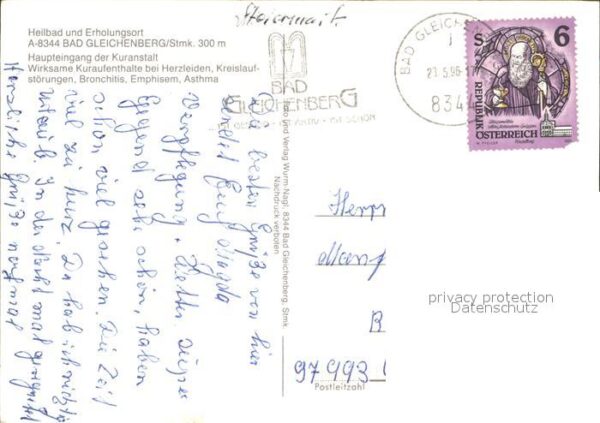 Steiermark
Heilbad und Erholungsort
A-8344 BAD GLEICHENBERG/Stmk. 300 m
Haupteingang der Kuranstalt
Wirksame Kuraufenthalte bei Herzleiden, Kreislauf-
störungen, Bronchitis, Emphisem, Asthma
BAD
GLEICHENBERG
BAD GLEICHEN
8344
6
REPUBLIK
ÖSTERREICH
Die besten Grüße von hier
sendet Euch
Verpflegung + Wetter super
Gegend sehr schön, haben
schon viel gesehen. Die Zeit
viel zu kurz. Da hab ich nichts
In der Nacht mal geregnet
Herzliche Grüße nochmal
und Verlag Wurm-Nagl, 8344 Bad Gleichenberg, Stmk.
Nachdruck verboten
Herrn
Manf
B
97993
Postleitzahl
privacy protection
Datenschutz